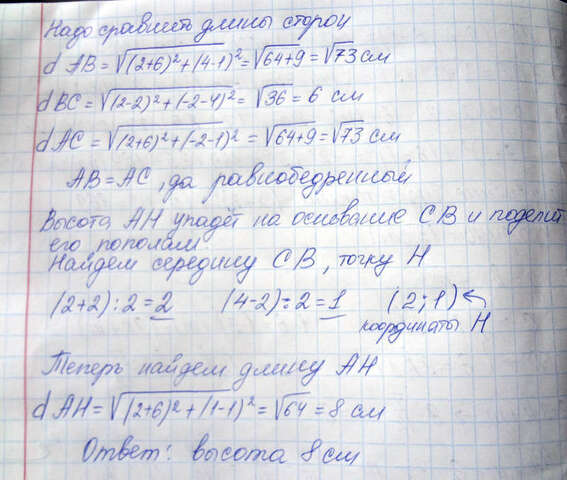 Надо сравнить длины сторон
d AB = √(2+6)²+(4-1)² = √64+9 = √73 см
d BC = √(2-2)²+(-2-4)² = √36 = 6 см
d AC = √(2+6)²+(-2-1)² = √64+9 = √73 см
AB = AC, да равнобедренный
Высота AH упадёт на основание CB и поделит
его пополам.
Найдем середину CB, точку H
(2+2):2=2 (4-2):2=1 (2;1) ←
координаты H
Теперь найдем длину AH
d AH = √(2+6)²+(1-1)² = √64 = 8 см
Ответ: высота 8 см